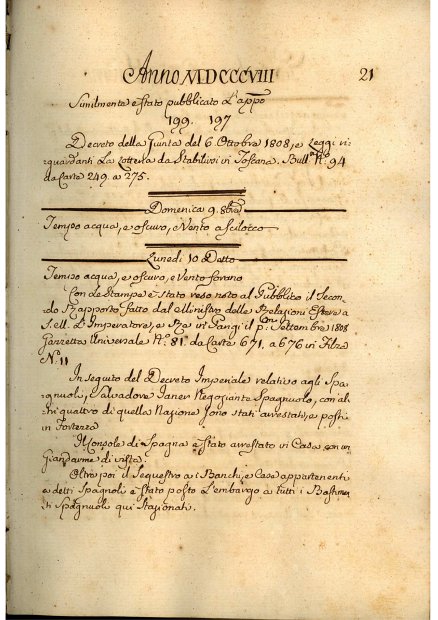 Anno MDCCCVIII 21
Similmente è stato pubblicato l'appo
199. 197
Decreto della Giunta del 6 Ottobra 1808, e Leggi ri-
-guardanti La Lotteria da Stabilirsi in Toscana. Bull.º Nº 94
da Carte 249. a 275.
Domenica 9. 8bre
Tempo acqua, e oscuro, Vento a Scilocco
Lunedì 10 Detto
Tempo acqua, e oscuro, e Vento sovano
Con de Stampe è stato reso noto al Pubblico il Secon-
do Rapporto fatto dal Ministro delle Relazioni Estere a
S. ell. L'Imperatore, e Re in Parigi il pº Settembre 1808
Gazzetta Universale Nº 81. da Carte 671. a 676 in Filza
Nº 11
In seguito del Decreto Imperiale relativo agli Spa-
gnuoli, Salvadore Janer Negoziante Spagnuolo, con al-
-tri quattro di quella Nazione sono stati arrestati, e posti
in Fortezza
Il Console di Spagna è stato arrestato in Casa con un
Giandarme di vista
Oltre poi il Sequestro a i Banchi, e Case appartenenti
a detti Spagnoli è stato posto L'embargo à tutti i Bastimen-
ti Spagnuoli qui Stazionati.